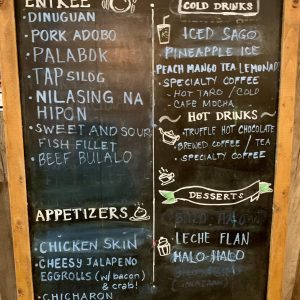 ENTREE
• DINUGUAN
• PORK ADOBO
• PALABOK
• TAPSILOG
• NILASING NA
HIPON
• SWEET AND SOUR
FISH FILLET
• BEEF BULALO
APPETIZERS
• CHICKEN SKIN
• CHEESY JALAPENO
EGGROLLS (w/ bacon
& crab!)
• CHICHARON
COLD DRINKS
ICED SAGO
PINEAPPLE ICE
PEACH MANGO TEA LEMONADE
• SPECIALTY COFFEE
• HOT TARO / COLD
• CAFE MOCHA
• HOT DRINKS
• TRUFFLE HOT CHOCOLATE
BREWED COFFEE / TEA
• SPECIALTY COFFEE
DESSERTS
LECHE FLAN
HALO-HALO